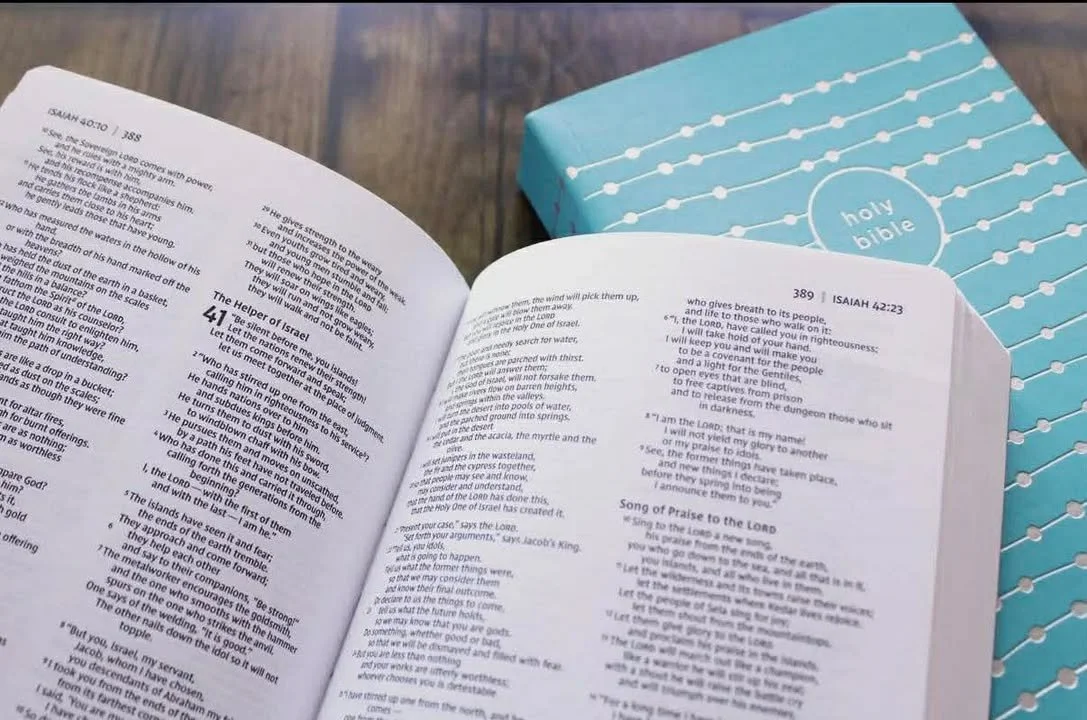 ISAIAH 40:10 | 388
10 See, the Sovereign LORD comes with power,
and he rules with a mighty arm.
See, his reward is with him,
and his recompense accompanies him.
11 He tends his flock like a shepherd:
He gathers the lambs in his arms
and carries them close to his heart;
he gently leads those that have young.
12 Who has measured the waters in the hollow of his
hand,
or with the breadth of his hand marked off the
heavens?
has held the dust of the earth in a basket,
weighed the mountains on the scales
the hills in a balance?
fathom the Spirit of the LORD,
the LORD as his counselor?
the LORD consult to enlighten him,
taught him the right way?
at taught him knowledge,
him the path of understanding?
are like a drop in a bucket;
ed as dust on the scales;
lands as though they were fine
nt for altar fires,
gh for burnt offerings.
are as nothing;
m as worthless
pare God?
him?
s it,
gold
offering
29 He gives strength to the weary
and increases the power of the weak.
30 Even youths grow tired and weary,
and young men stumble and fall;
31 but those who hope in the LORD
will renew their strength.
They will soar on wings like eagles;
they will run and not grow weary,
they will walk and not be faint.
The Helper of Israel
41 "Be silent before me, you islands!
Let the nations renew their strength!
Let them come forward and speak;
let us meet together at the place of judgment.
2 "Who has stirred up one from the east,
calling him in righteousness to his service?
He hands nations over to him
and subdues kings before him.
He turns them to dust with his sword,
to windblown chaff with his bow.
3 He pursues them and moves on unscathed,
by a path his feet have not traveled before.
4 Who has done this and carried it through,
calling forth the generations from the
beginning?
I, the LORD—with the first of them
and with the last—I am he."
5 The islands have seen it and fear;
the ends of the earth tremble.
They approach and come forward;
6 they help each other
and say to their companions, "Be strong!"
7 The metalworker encourages the goldsmith,
and the one who smooths with the hammer
spurs on the one who strikes the anvil.
One says of the welding, "It is good."
The other nails down the idol so it will not
topple.
8 "But you, Israel, my servant,
Jacob, whom I have chosen,
you descendants of Abraham my
9 I took you from the ends of the
from its farthest
I said, 'You are my
I have
389 | ISAIAH 42:23
them, the wind will pick them up,
will blow them away.
in the LORD
in the Holy One of Israel.
and needy search for water,
is none;
tongues are parched with thirst.
the LORD will answer them;
the God of Israel, will not forsake them.
make rivers flow on barren heights,
and springs within the valleys.
turn the desert into pools of water,
and the parched ground into springs.
put in the desert
the cedar and the acacia, the myrtle and the
olive.
set junipers in the wasteland,
the fir and the cypress together,
so that people may see and know,
may consider and understand,
that the hand of the LORD has done this,
that the Holy One of Israel has created it.
21 "Present your case," says the LORD.
"Set forth your arguments," says Jacob's King.
22 "Tell us, you idols,
what is going to happen.
Tell us what the former things were,
so that we may consider them
and know their final outcome.
Or declare to us the things to come,
tell us what the future holds,
so we may know that you are gods.
Do something, whether good or bad,
so that we will be dismayed and filled with fear.
But you are less than nothing
and your works are utterly worthless;
whoever chooses you is detestable
"I have stirred up one from the north, and he
comes—
one from the
who gives breath to its people,
and life to those who walk on it:
6 "I, the LORD, have called you in righteousness;
I will take hold of your hand.
I will keep you and will make you
to be a covenant for the people
and a light for the Gentiles,
7 to open eyes that are blind,
to free captives from prison
and to release from the dungeon those who sit
in darkness.
8 "I am the LORD; that is my name!
I will not yield my glory to another
or my praise to idols.
9 See, the former things have taken place,
and new things I declare;
before they spring into being
I announce them to you."
Song of Praise to the LORD
10 Sing to the LORD a new song,
his praise from the ends of the earth,
you who go down to the sea, and all that is in it,
you islands, and all who live in them.
11 Let the wilderness and its towns raise their voices;
let the settlements where Kedar lives rejoice.
Let the people of Sela sing for joy;
let them shout from the mountaintops.
12 Let them give glory to the LORD
and proclaim his praise in the islands.
13 The LORD will march out like a champion,
like a warrior he will stir up his zeal;
with a shout he will raise the battle cry
and will triumph over his enemies.
14 "For a long time I have
holy
bible